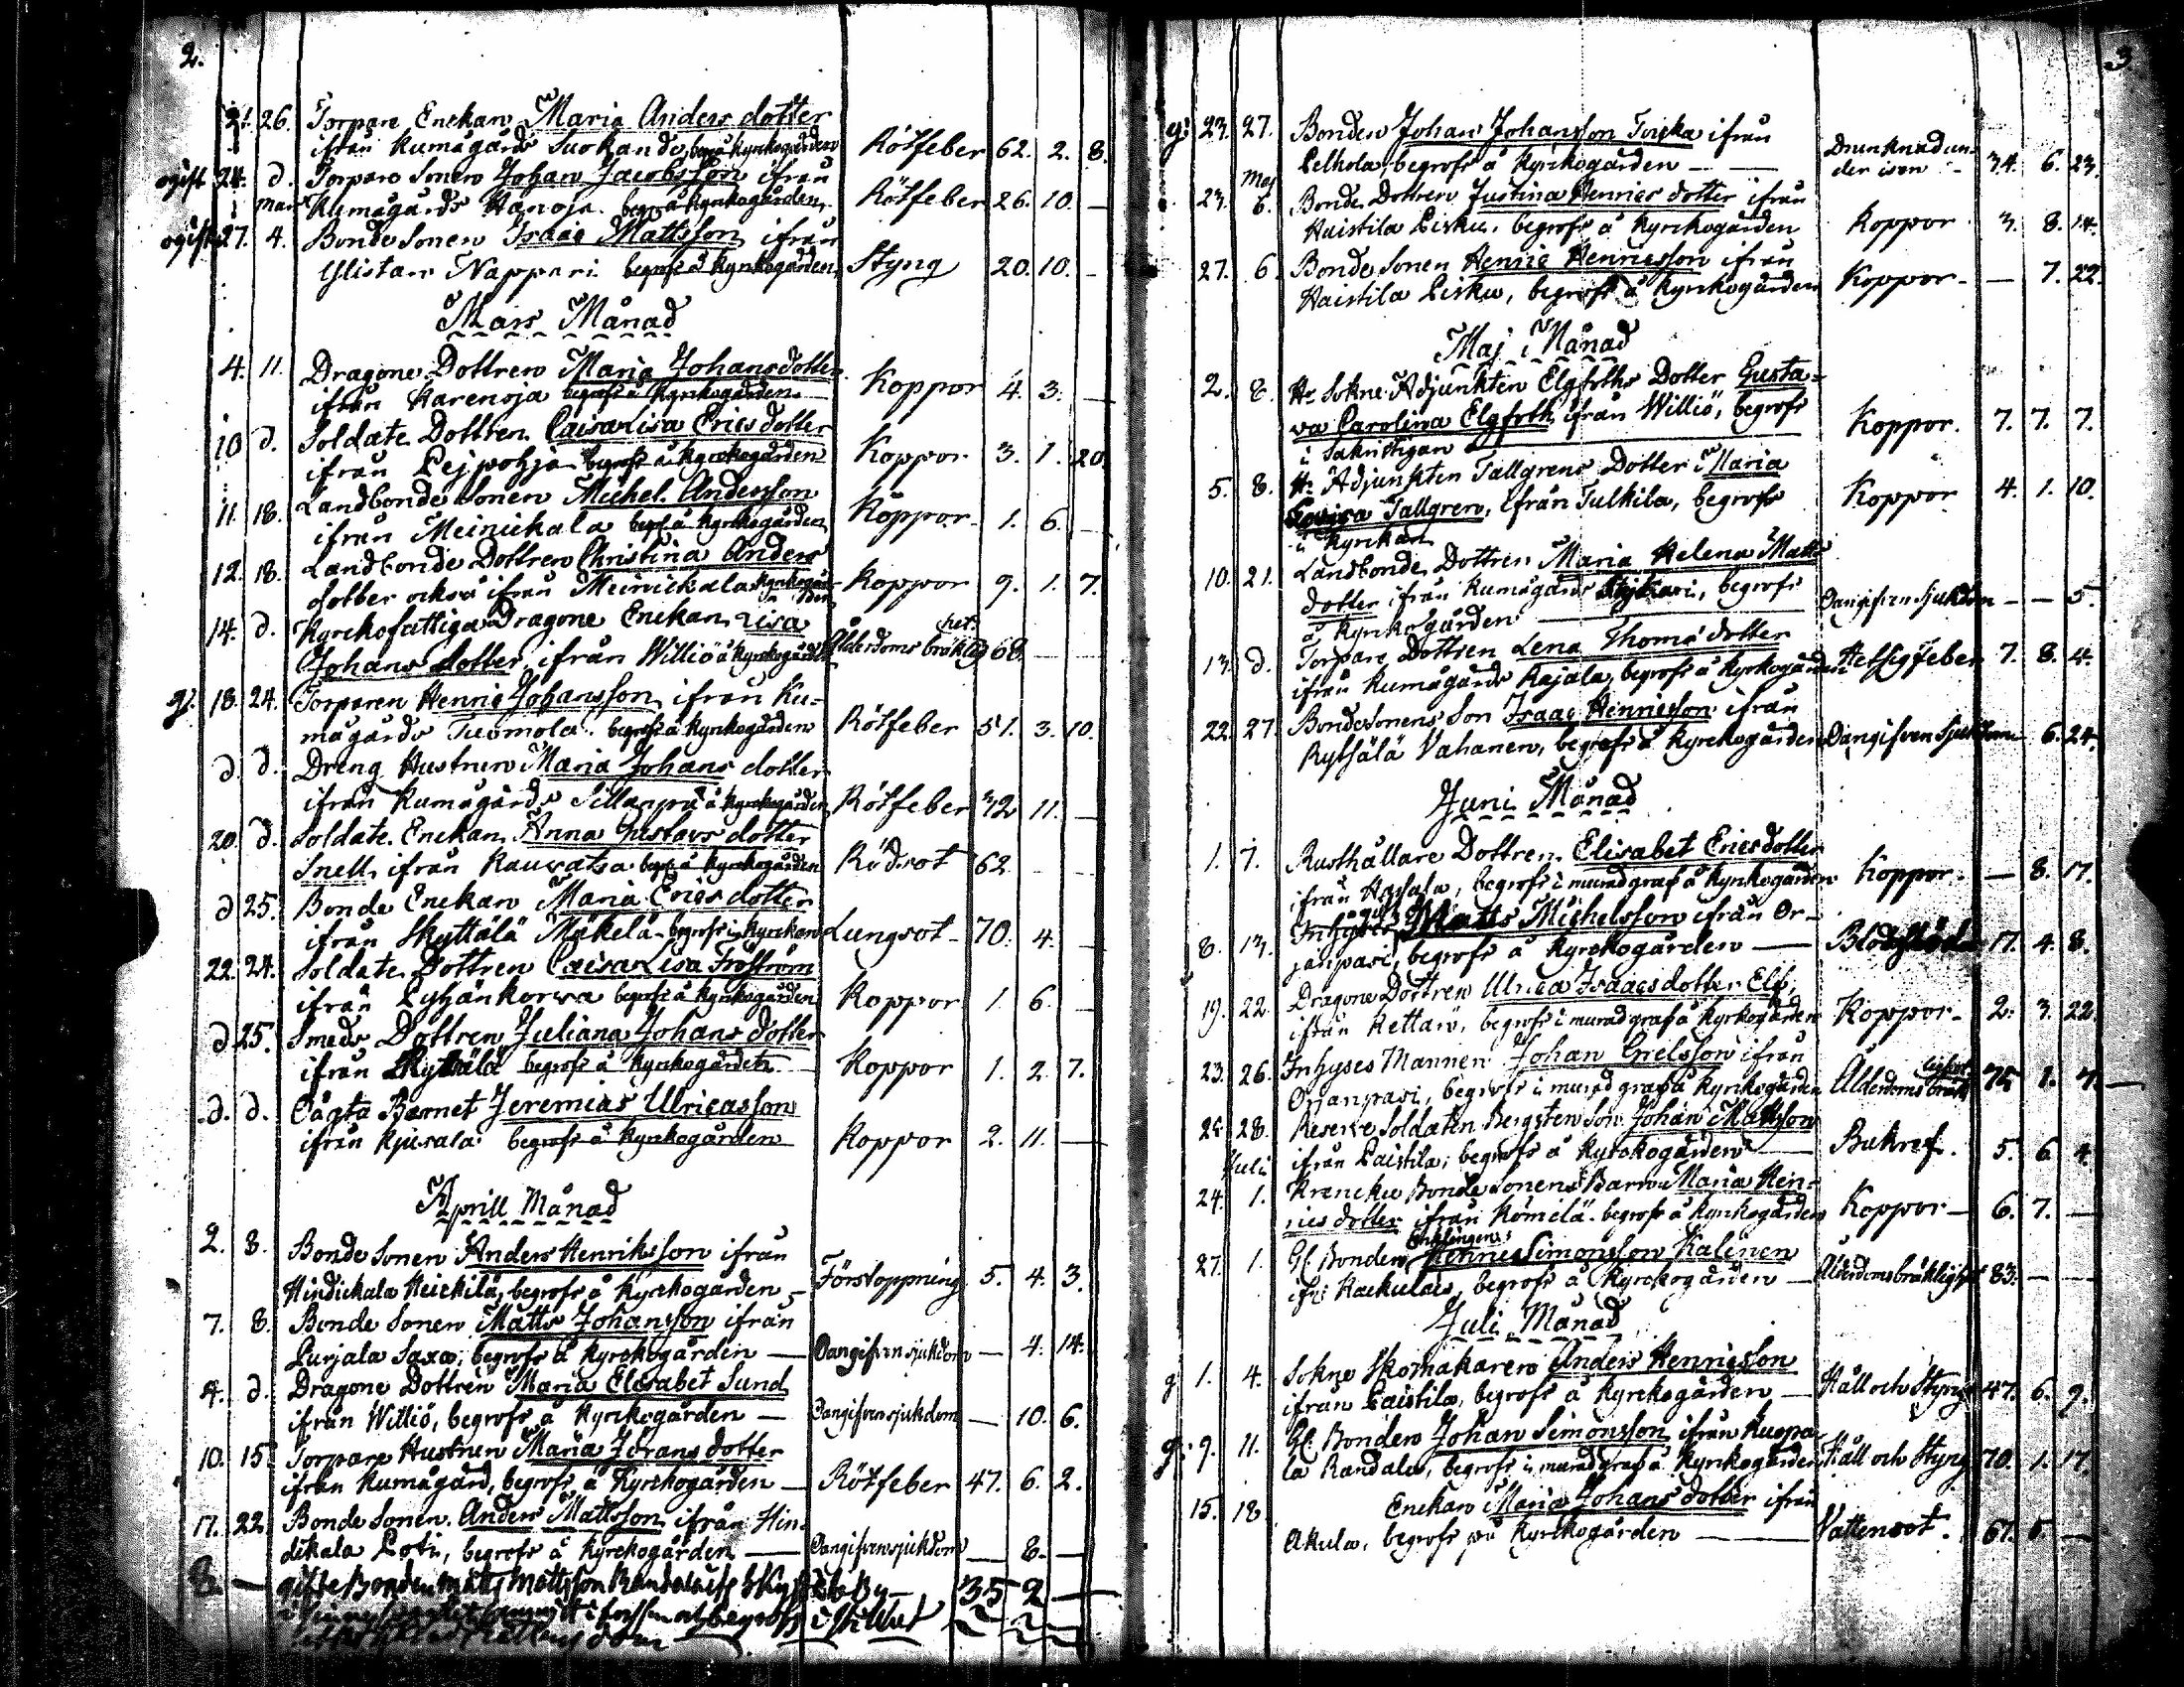 2.
21. 26. Torpare Enckan Maria Anders dotter
ifrån Kumågårds Suokando, begr. å Kyrkogården Rötfeber 62. 2. 8.
ogift 24. d. Torpare Sonen Johan Jacobsson ifrån
Mars Kumågårds Hanoja. begr. å Kyrkogården Rötfeber 26. 10. —
ogift 27. 4. Bonde Sonen Isaac Mattsson ifrån
Ylistaro Nappari begrofs å Kyrkogården Styng 20. 10. —
Mars Månad
4. 11. Dragone Dottren Maria Johansdotter
ifrån Karenoja begrofs å Kyrkogården — Koppor 4. 3. —
10 d. Soldate Dottren Caisa Lisa Erics dotter
ifrån Pejpohja begrofs å Kyrkogården Koppor 3. 1. 20
11. 18. Landbonde Sonen Michel Andersson
ifrån Meinickala begrofs å Kyrkogården Koppor 1. 6. —
12. 18. Landbonde Dottren Christina Anders
dotter också ifrån Meinickala Kyrkogården Koppor 9. 1. 7.
14. d. Kyrkofattiga Dragone Enckan Lisa
Johans dotter ifrån Williö å Kyrkogården Ålderdoms bräcklighet 68. — —
g. 18. 24. Torparen Henric Johansson ifrån Ku-
mågårds Tuomola. begrofs å Kyrkogården Rötfeber 51. 3. 10.
d. d. Dreng Hustrun Maria Johans dotter
ifrån Kumågårds Sillanpää å Kyrkogården Rötfeber 42 11. —
20. d. Soldate Enckan Anna Gustavs dotter
Snell, ifrån Rauvatsa begrofs å Kyrkogården Rödsot 62. — —
d 25. Bonde Enckan Maria Erics dotter
ifrån Skyttälä Mäkelä begrofs i Kyrckan Lungsot 70. 4. —
22. 24. Soldate Dottren Caisa Lisa Froström
ifrån Lyhänkorva begrofs å Kyrkogården Koppor 1. 6. —
d 25. Smeds Dottren Juliana Johans dotter
ifrån begrofs å Kyrkogården Koppor 1. 2. 7.
d. d. Oägta Barnet Jeremias Ulricasson
ifrån Kjusala begrofs å Kyrkogården Koppor 2. 11. —
Aprill Månad
2. 8. Bonde Sonen Anders Henriksson ifrån
Hindickala Heickilä, begrofs å Kyrckogården — Förstoppning 5. 4. 3.
7. 8. Bonde Sonen Matts Johansson ifrån
Purjala Saxa, begrofs å Kyrckogården — Oangifven sjukdom — 4. 14.
4. d. Dragone Dottren Maria Elisabet Sund
ifrån Williö, begrofs å Kyrckogården — Oangifven sjukdom — 10. 6.
10. 15. Torpare Hustrun Maria Johans dotter
ifrån Kumågård, begrofs å Kyrckogården — Rötfeber 47. 6. 2.
17. 22. Bonde Sonen Anders Mattsson ifrån Hin-
dikala Loti, begrofs å Kyrckogården — Oangifven sjukdom — 8. —
8. — gifte Bonden Matts Mattsson Randala By — 35 2 —
begrofs i stillhet
3.
g: 23. 27. Bonden Johan Johansson Toiska ifrån
Lelhola, begrofs å Kyrkogården — Drunknad un-
der isen 34. 6. 23.
Maj
23. 6. Bonde Dottren Justina Henrics dotter ifrån
Haistila Pisku, begrofs å Kyrckogården Koppor 3. 8. 14.
27. 6. Bonde Sonen Henric Henricsson ifrån
Haistila Pisku, begrofs å Kyrckogården Koppor — 7. 22.
Maj Månad
2. 8. Hr Sokne Adjunkten Elgfoths Dotter Gusta-
va Carolina Elgfoth ifrån Williö, begrofs
i Sakristigan Koppor. 7. 7. 7.
5. 8. Hr Adjunkten Tallgrens Dotter Maria
Lovisa Tallgren, ifrån Tulkila, begrofs
i Kyrckan Koppor 4. 1. 10.
10. 21. Landbonde Dottren Maria Helena Matts
dotter ifrån Kumågårds, begrofs
å Kyrckogården — Oangifven Sjukdom — — 5.
13. d. Torpare Dottren Lena Thomä dotter
ifrån Kumågårds Rajala, begrofs å Kyrkogården Hetsig feber 7. 8. 4.
22. 27. Bondesonens Son Isaac Henricsson ifrån
Rytsälä Vahanen, begrofs å Kyrckogården Oangifven Sjukdom 6. 24.
Juni Månad
1. 7. Rusthållare Dottren Elisabet Ericsdotter
ifrån, begrofs i murad graf å Kyrkogården Koppor — 8. 17.
8. 13. Matts Michelsson ifrån Or-
janpari, begrofs å Kyrckogården — 17. 4. 8.
19. 22. Dragone Dottren Ulrica Isaacsdotter Elf,
ifrån Kettaro, begrofs i murad graf å Kyrkogården Koppor — 2. 3. 22.
23. 26. Inhyses Mannen Johan Grelsson ifrån
Orjanpari, begrofs i murad graf å Kyrkogården Ålderdoms bräcklighet 75 1. 4. —
28. Reserve Soldaten Bergsten Son Johan Mattsson
ifrån Paistila, begrofs å Kyrckogården — Bukref. 5. 6. 4.
Juli
24. 1. Krancku Bonde Sonens Barn Maria Hen-
rics dotter ifrån Kömelä. begrofs å Kyrkogården Koppor — 6. 7. —
27. 1. Gl. Bonden Enklingen Henric Simonsson Kalinen
ifr. Haekulais, begrofs å Kyrckogården — Ålderdomsbräcklighet 83. — —
Juli Månad
g 1. 4. Sokne Skomakaren Anders Henricsson
ifrån Paistila, begrofs å Kyrckogården — Håll och Styng 47. 6. 9.
g: 9. 11. Gl. Bonden Johan Simonsson ifrån Kuspa-
la Randala, begrofs i murad graf å Kyrckogården Håll och Styng 70. 1. 17.
15. 18. Enckan Maria Johans dotter ifrån
Akula, begrofs på Kyrckogården — Vattensot. 67. 5. —